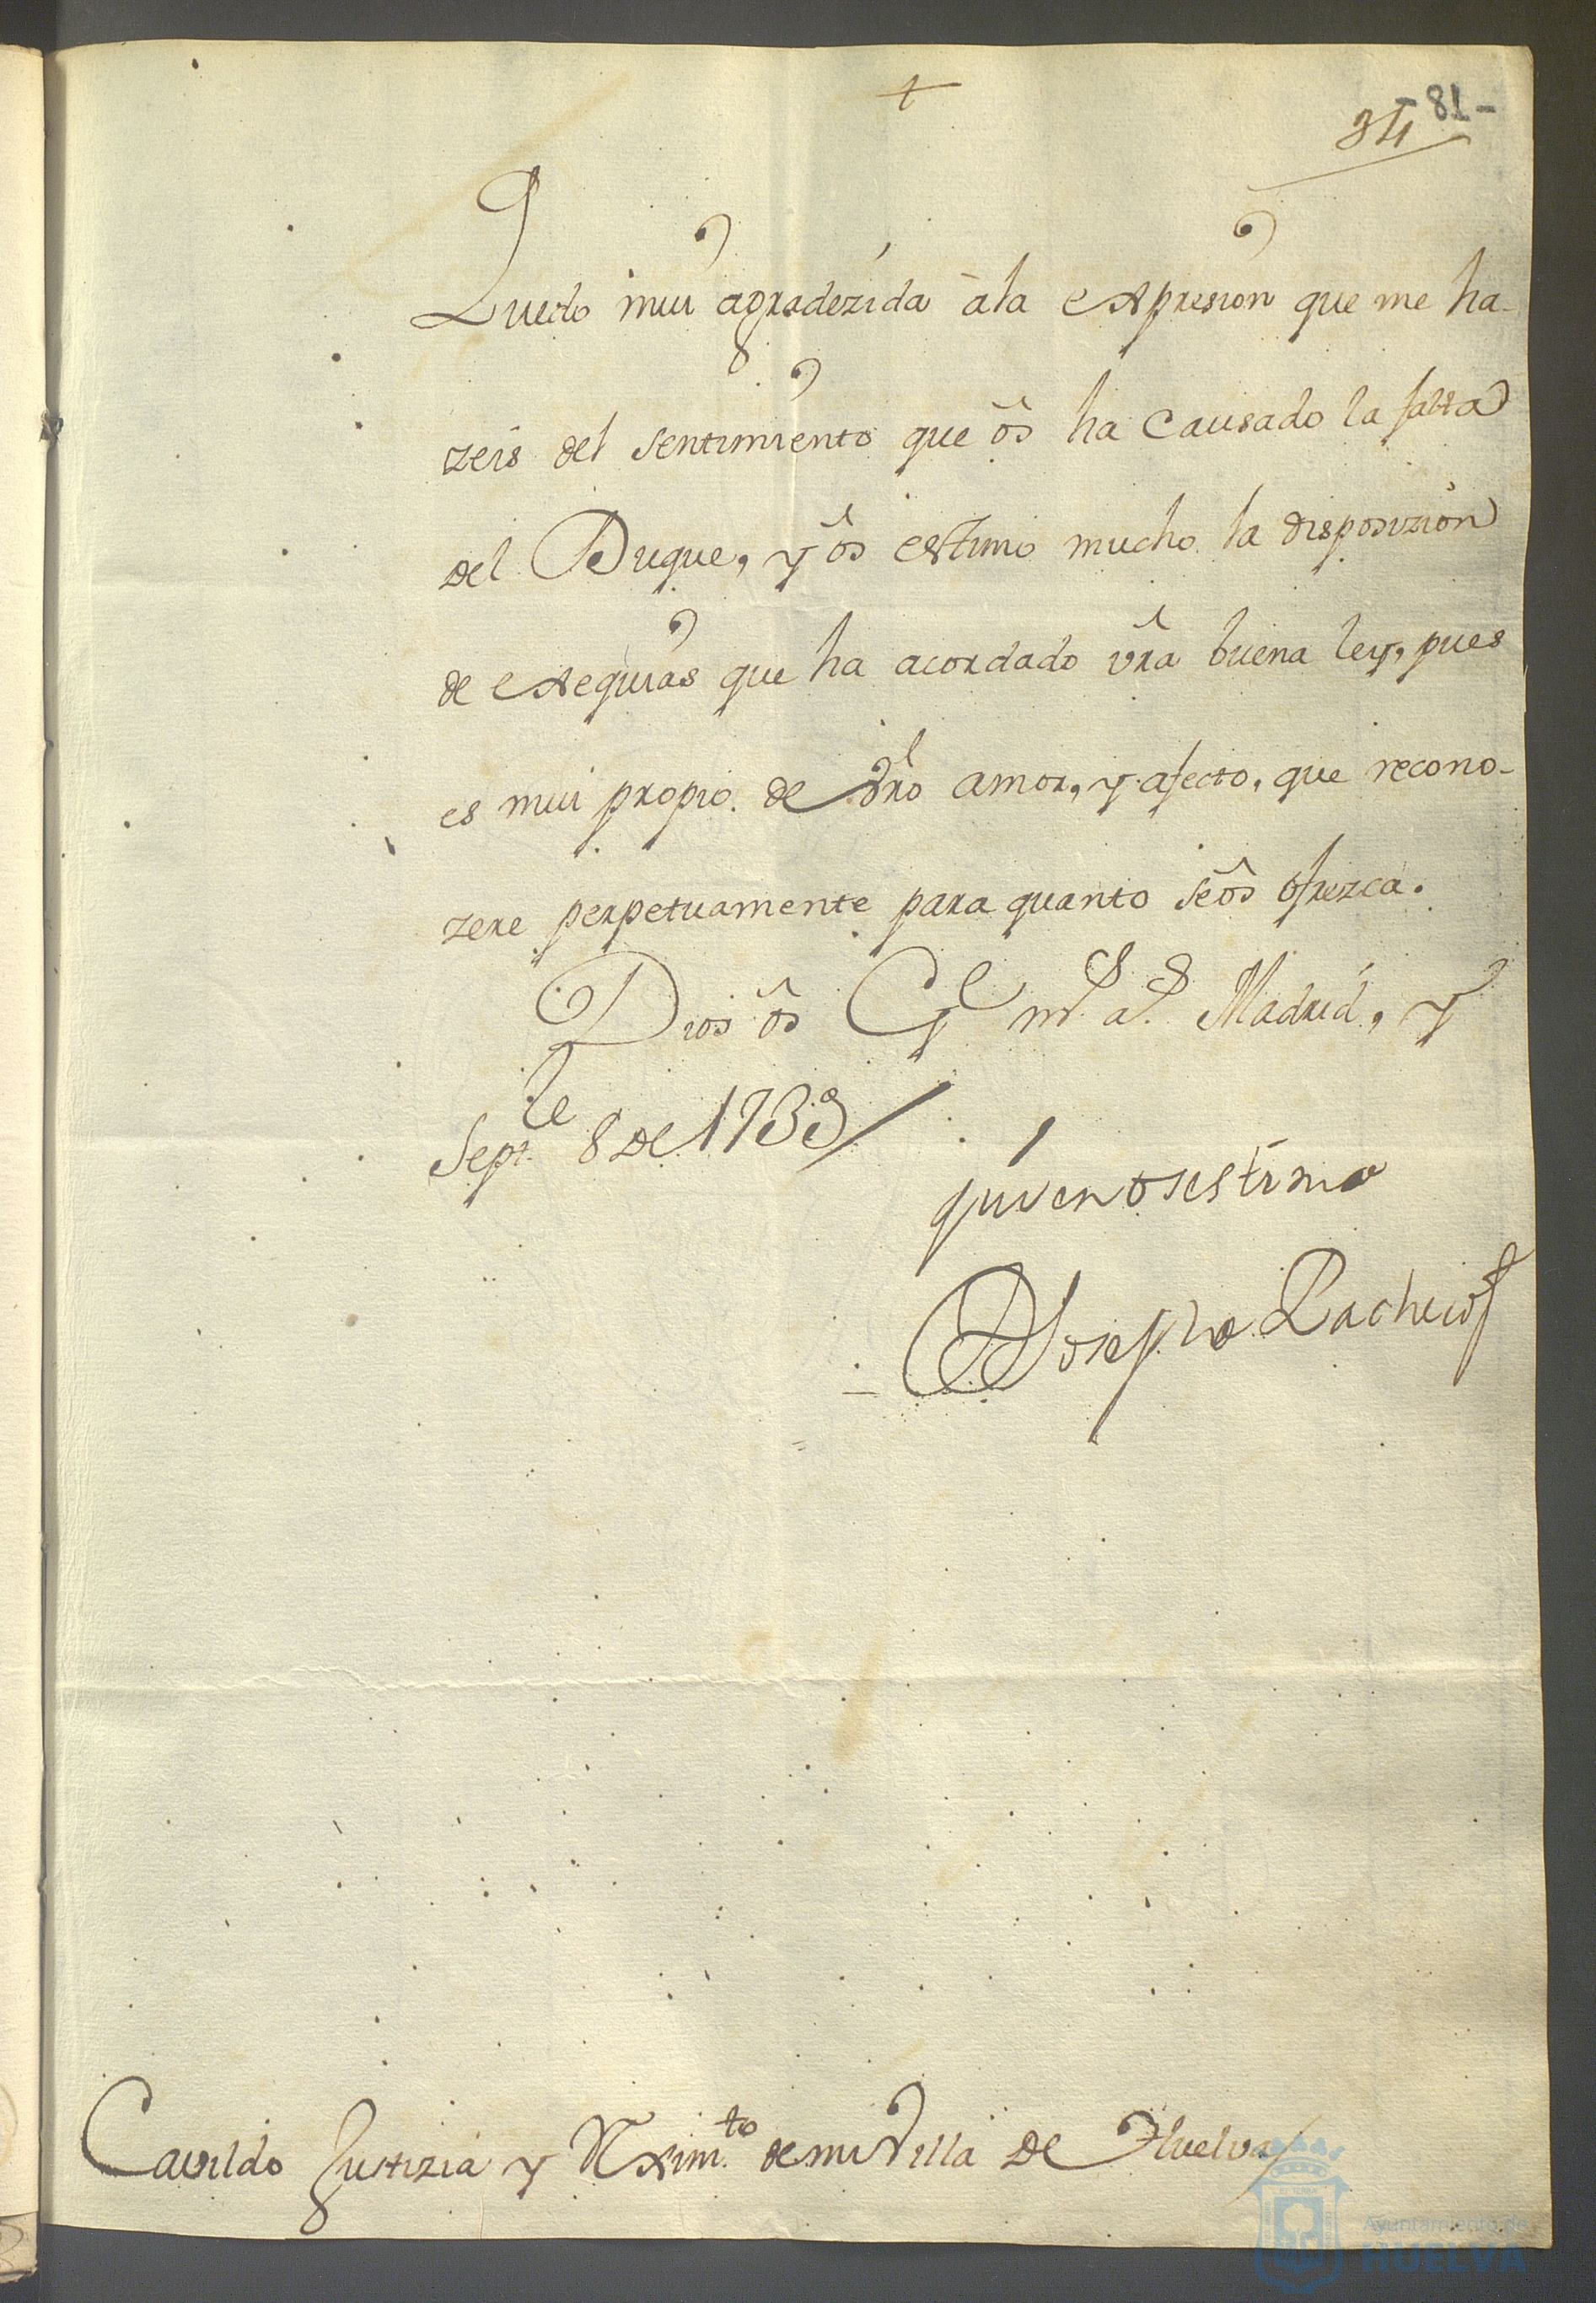 +
81-
Quedo mui agradezida à la expresion que me ha-
zeis del sentimiento que ôs ha causado la falta
del Duque, y ôs estimo mucho la disposizion
de exequias que ha acordado vr̃a buena ley, pues
es mui propio de vr̃o amor, y afecto, que recono-
zere perpetuamente para quanto se ôs ofrezca.
Dios ôs G^e m^s a^s Madrid, y
Sept^re 8 de 1733
quien os estima
Josepha Pacheco
Cavildo Justizia y Rexim^to de mi Villa de Huelva
Ayuntamiento de
HUELVA